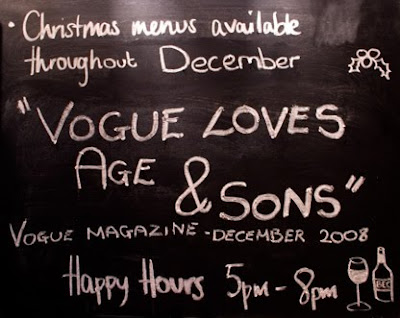 • Christmas menus available
throughout December
"VOGUE LOVES
AGE & SONS"
VOGUE MAGAZINE - DECEMBER 2008
Happy Hours 5pm - 8pm